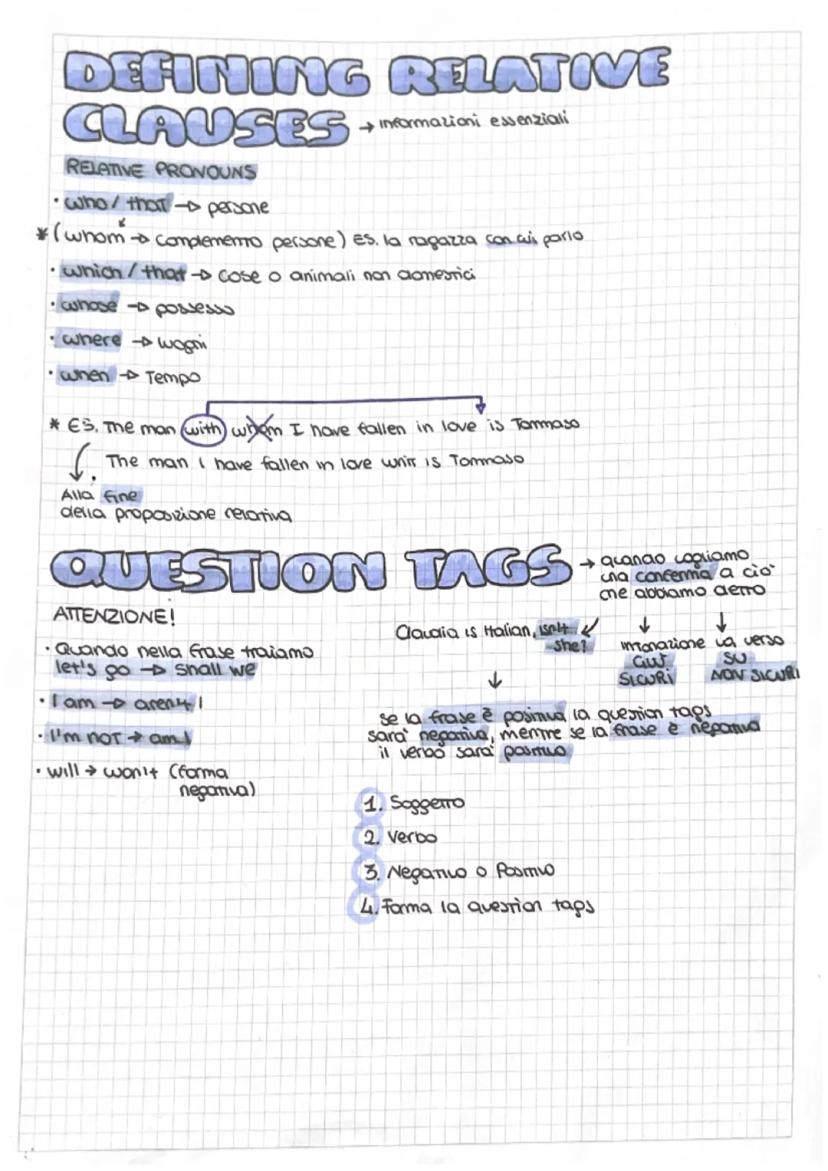 DEFINING RELATIVE
CLAUSES → informazioni essenziali
RELATIVE PRONOUNS
• who / that → persone
* (whom → complemento persone) ES. la ragazza con cui parlo
• which / that → cose o animali non domestici
• whose → possesso
• where → luoghi
• when → Tempo
* ES. The man with whom I have fallen in love is Tommaso
The man I have fallen in love with is Tommaso
Alla fine
della proposizione relativa
QUESTION TAGS → quando vogliamo
una conferma a ciò
che abbiamo detto
ATTENZIONE!
• Quando nella frase troviamo
let's go → Shall we
• I am → aren't I
• I'm NOT → am I
• will → won't (forma
negativa)
Claudia is Italian, isn't
she?
intonazione va verso
GIÙ SU
SICURI NON SICURI
se la frase è positiva la question taps
sarà negativa, mentre se la frase è negativa
il verbo sarà positivo
1. Soggetto
2. Verbo
3. Negativo o Positivo
4. Forma la question taps